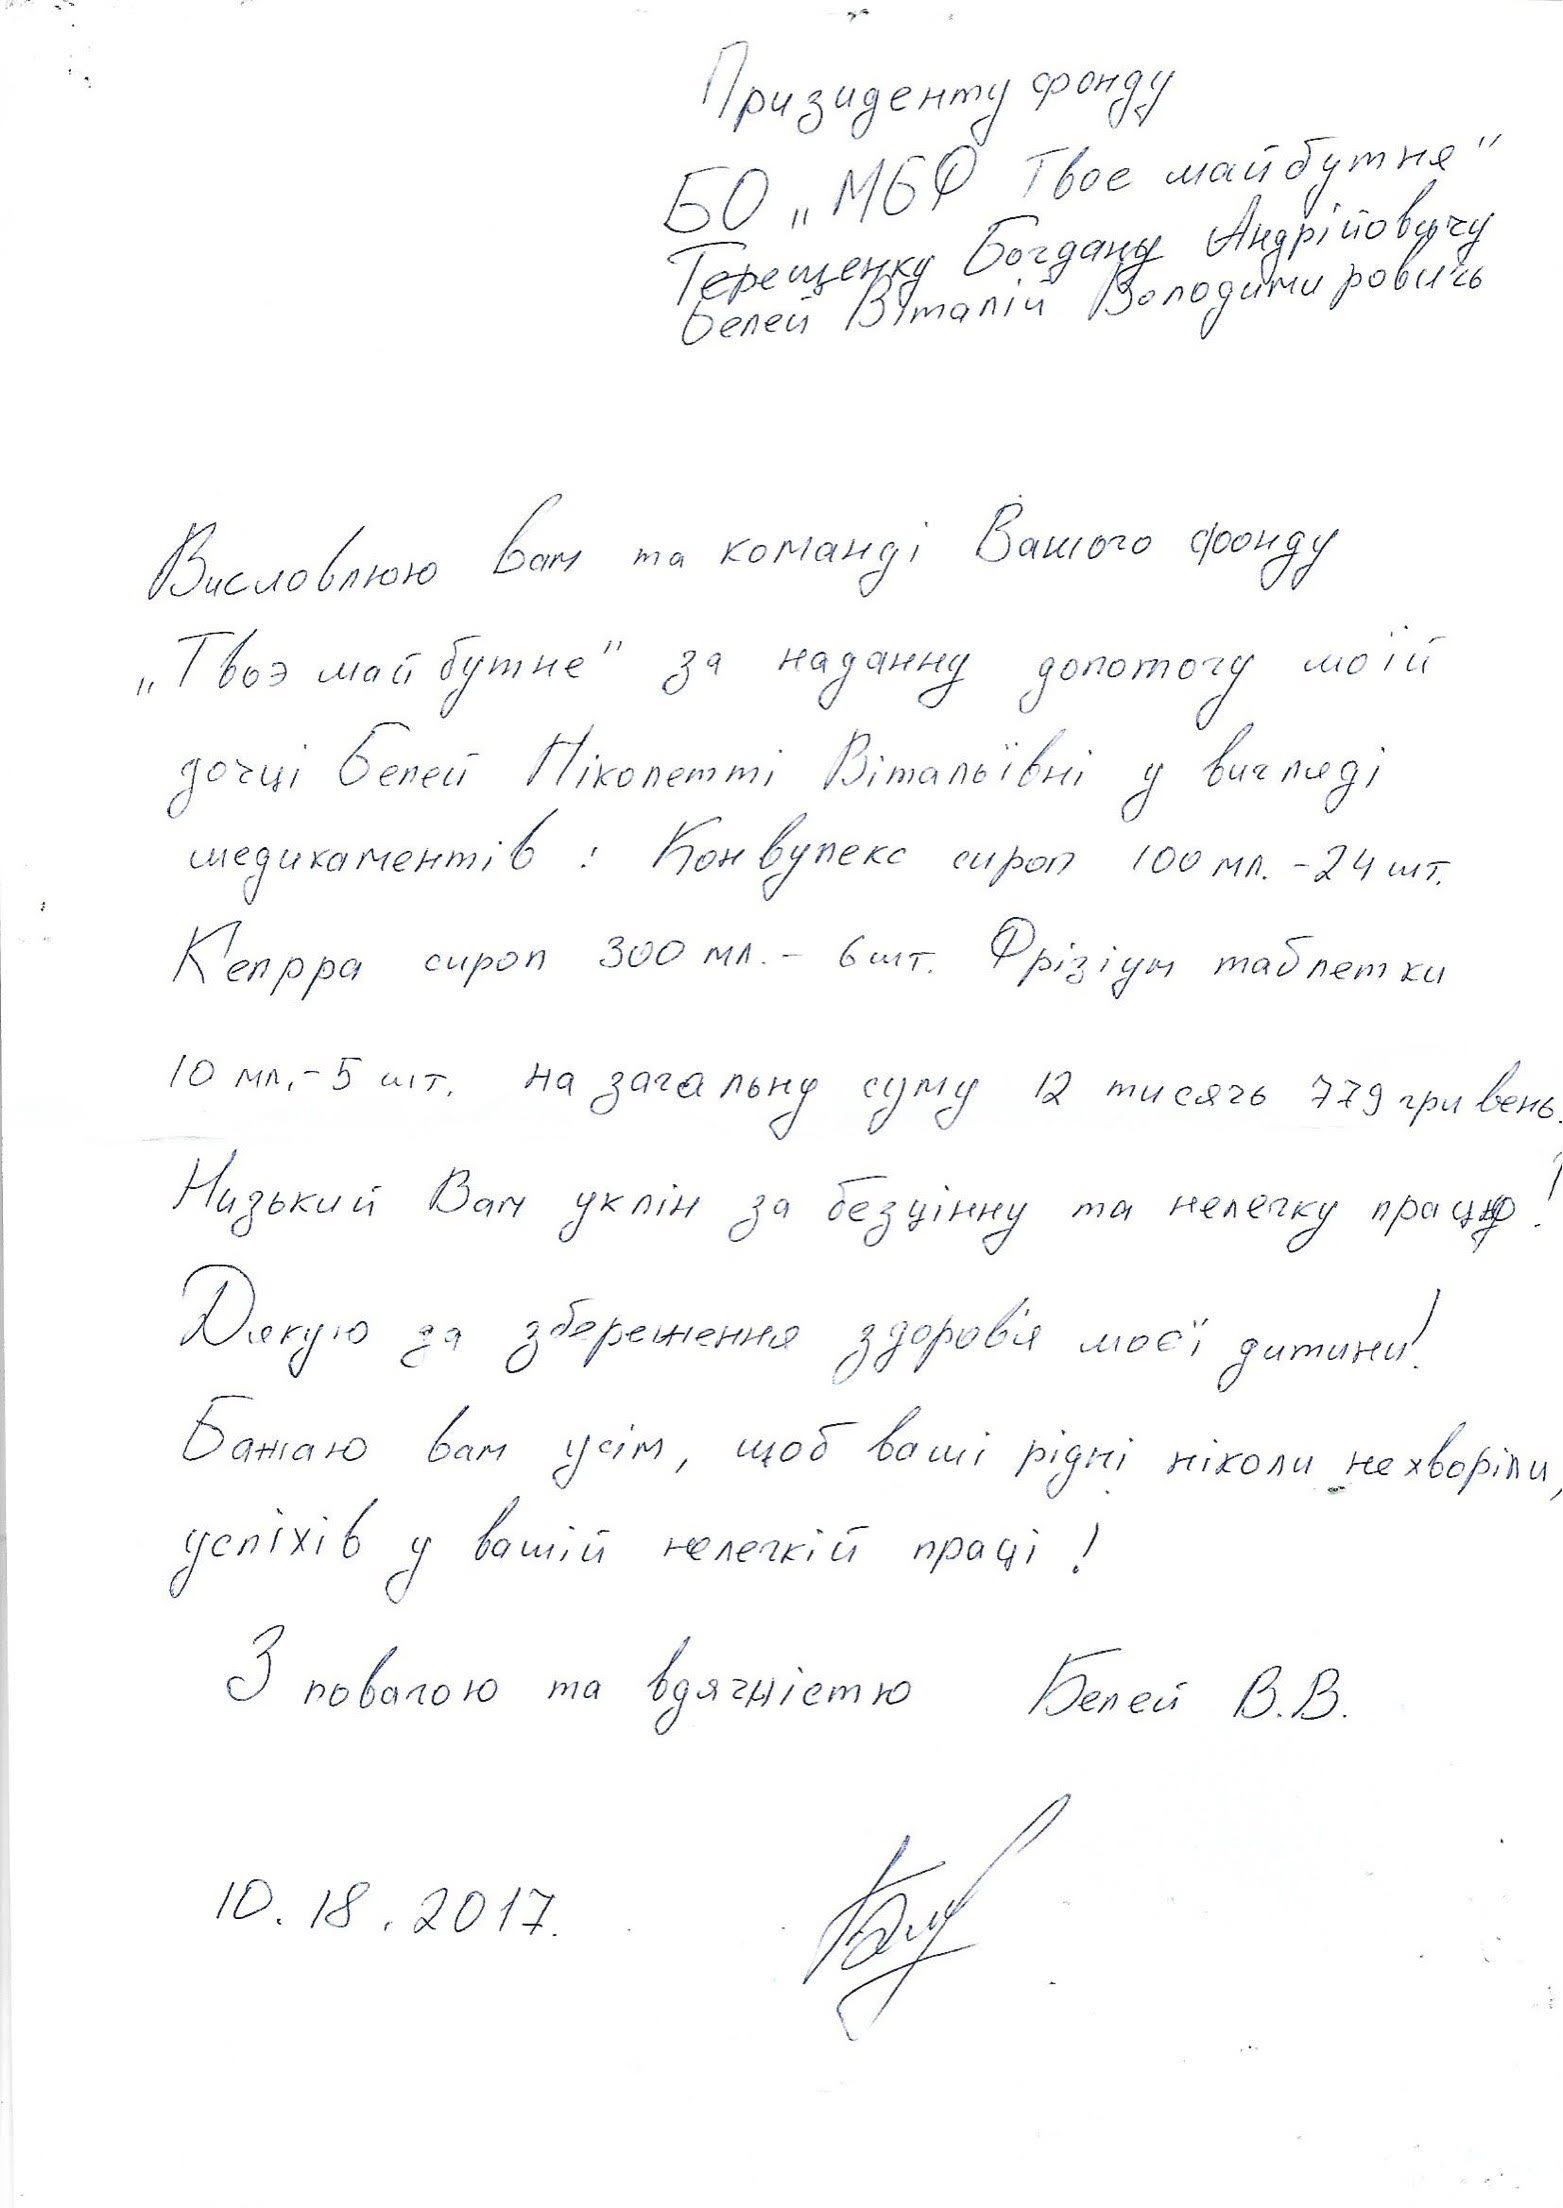 Призиденту фонду
БО „МБФ Твоє майбутня"
Терещенку Богдану Андрійовичу
Белей Віталій Володимировичь
Висловлюю вам та команді Вашого фонду
„Твоэ майбутне" за наданну допомогу моїй
дочці Белей Ніколетті Вітальївні у вигляді
медикаментів : Конвулекс сироп 100 мл. - 24 шт.
Кеппра сироп 300 мл. - 6 шт. Фрізіум таблетки
10 мл. - 5 шт. на загальну суму 12 тисячь 779 гривень.
Низький Вам уклін за безцінну та нелегку працю!
Дякую за збереження здоров'я моєї дитини!
Бажаю вам усім, щоб ваші рідні ніколи не хворіли,
успіхів у вашій нелегкій праці !
З повагою та вдячністю Белей В.В.
10.18.2017.